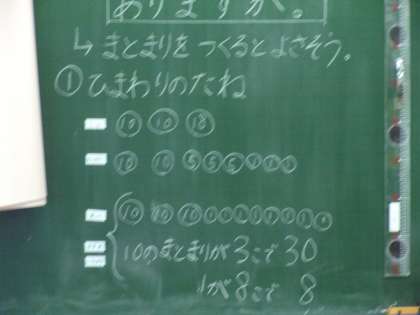 ありますか。
↳まとまりをつくるとよさそう。
①ひまわりのたね
⑩ ⑩ ⑱
⑩ ⑩ ⑤ ⑤ ⑤ ① ① ①
⑩ ⑩ ⑩ ① ① ① ① ① ① ① ①
10のまとまりが3こで30
1が8こで 8